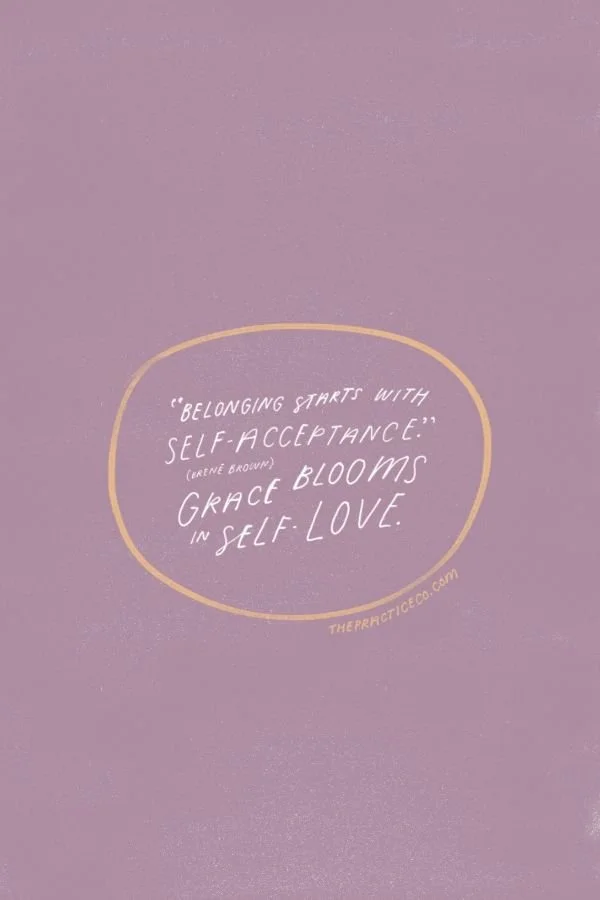 “BELONGING STARTS WITH
SELF-ACCEPTANCE.”
(BRENÉ BROWN)
GRACE BLOOMS
IN SELF-LOVE.
THEPRACTICECO.COM